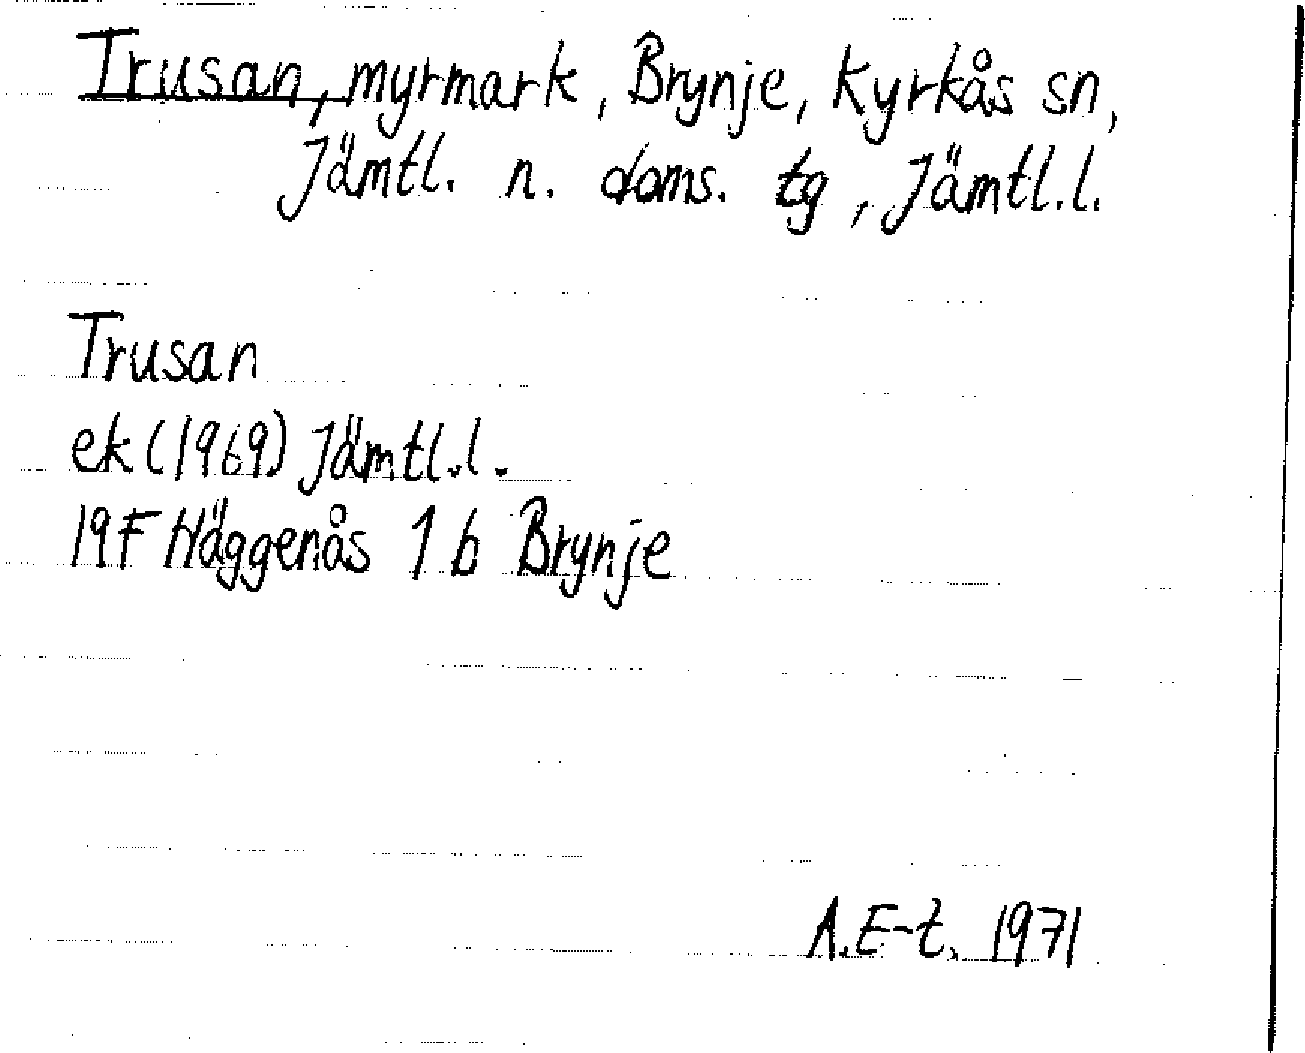 Trusan, myrmark, Brynje, Kyrkås sn,
Jämtl. n. doms. tg, Jämtl.l.
Trusan
ek (1969) Jämtl.l.
19F Häggenås 1 b Brynje
A.E-t. 1971